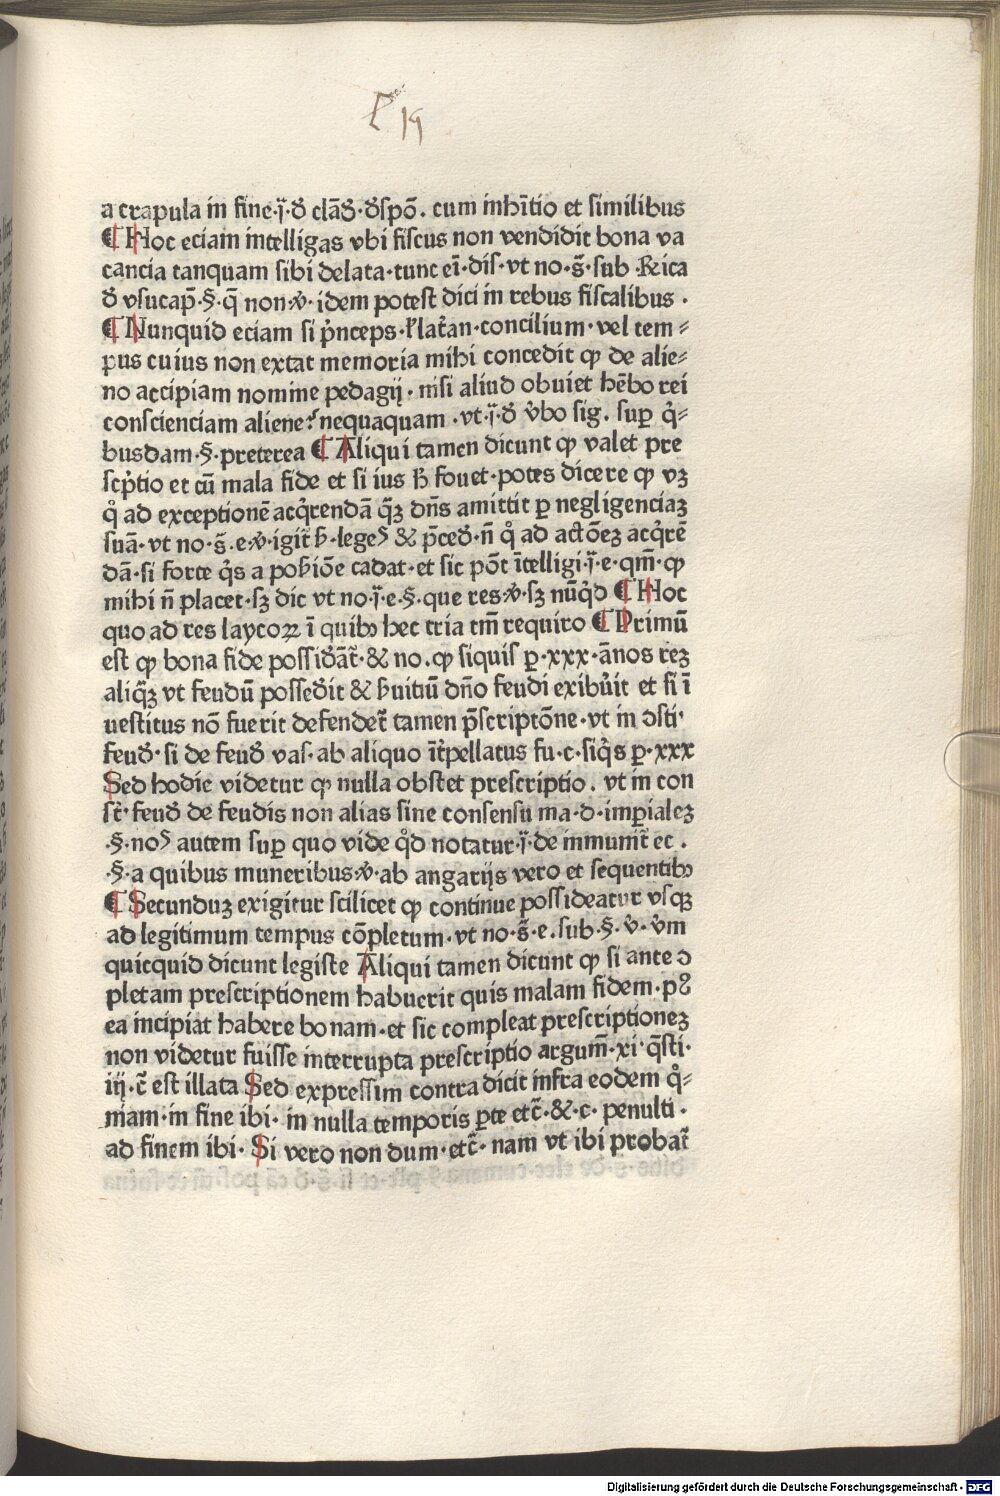 a crapula in fine·i̅·ꝺ̅ claꝺ̅·ꝺ̅spō. cum inhītio et similibus
¶ Hoc eciam intelligas vbi fiscus non vendidit bona va
cancia tanquam sibi delata·tunc eī·dis·vt no·s̄·sub·Rica
ꝺ̅ vsucap̄·§·q̄ non·v̓·idem potest dici in rebus fiscalibus .
¶ Nunquid eciam si p̓nceps·l̓lat̓an·concilium·vel tem⸗
pus cuius non extat memoria mihi concedit ꝙ de alie⸗
no accipiam nomine pedagij·nisi aliud obuiet hēbo rei
conscienciam aliene? nequaquam·vt·i̅·ꝺ̅ v̓bo sig. suꝑ q̓⸗
busdam·§·preterea ¶ Aliqui tamen dicunt ꝙ valet pre
scp̓tio et cū mala fide et si ius ħ fouet·potes dicere ꝙ vꝫ
q̊ ad exceptionē acq̓rendā q̄ꝫ dn̄s amittit ꝑ negligenciaꝫ
suā·vt no·s̄·e·v̓·igit̄ ħ·lege &amp; p̄ceꝺ̅·n̄ q̊ ad actōeꝫ acq̓rē
dā·si forte q̓s a poẜiōe cadat·et sic pōt ītelligi·i̅·e·qm̄·ꝙ
mihi n̄ placet·sꝫ dic vt no·i̅·e·§·que res·v̓·sꝫ nūq̓d ¶ Hoc
quo ad res laycoꝝ ī quibꝫ hec tria tm̄ requiro ¶ Primū
est ꝙ bona fide possiꝺ̅āt̄·&amp; no.ꝙ siquis ꝑ·xxx·ānos reꝫ
aliq̄ꝫ vt feudū posseꝺ̅it &amp; ẜuitiū dn̄o feudi exibu̓it et si ī
uestitus nō fuerit defendet̄ tamen p̄scriptōne·vt in ꝯsti·
feuꝺ̅·si de feuꝺ̅ vas·ab aliquo īt̄pellatus fu·c·siq̓s ꝑ·xxx
Sed hodie videtur ꝙ nulla obstet prescriptio . vt in con
st̄·feuꝺ̅ de feudis non alias sine consensu ma·d·imꝑialeꝫ
·§·no autem suꝑ quo vide q̊d notatur·i̅·de inmunit̄ ec .
·§·a quibus muneribus·v̓·ab angarijs vero et sequentibꝫ
¶ Secunduꝫ exigitur scilicet ꝙ continue possideatur vsqꝫ
ad legitimum tempus cōpletum·vt no·s̄·e·sub·§·v̓·v̓m
quicquid dicunt legiste Aliqui tamen dicunt ꝙ si ante ꝯ
pletam prescriptionem habuerit quis malam fidem·pꝰ
ea incipiat habere bonam·et sic compleat prescriptioneꝫ
non videtur fuisse interrupta prescriptio argum̄·xi·q̄sti·
iij·c̄ est illata Sed expressim contradicit infra eodem q̊⸗
niam·in fine ibi·in nulla temporis ꝑte etc̄·&amp;·c·penulti·
ad finem ibi·Si vero non dum·etc̄·nam vt ibi probat̄
Digitalisierung gefördert durch die Deutsche Forschungsgemeinschaft - DFG